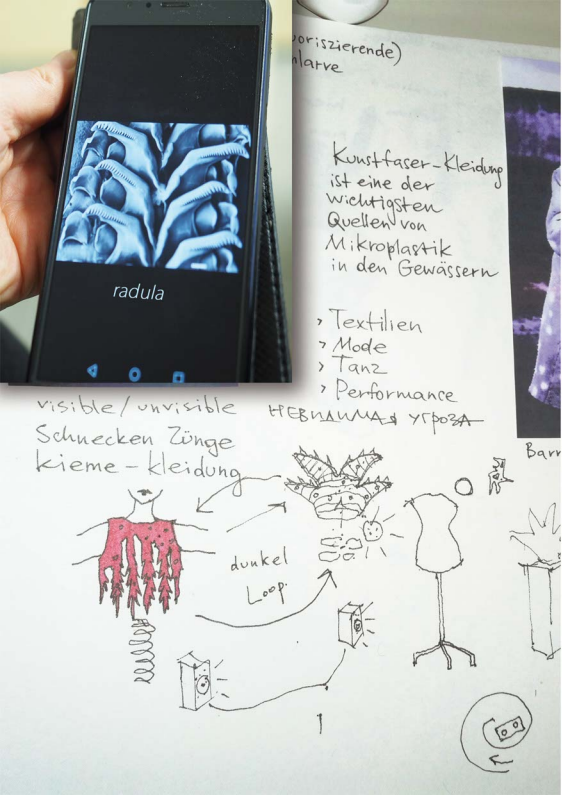 radula
voriszierende)
nlarve
Kunstfaser-Kleidung
ist eine der
wichtigsten
Quellen von
Mikroplastik
in den Gewässern
> Textilien
> Mode
> Tanz
> Performance
visible/unvisible
НЕВИДИМАЯ УГРОЗА
Schnecken Zünge
kieme-kleidung
Barr
dunkel
Loop.
1